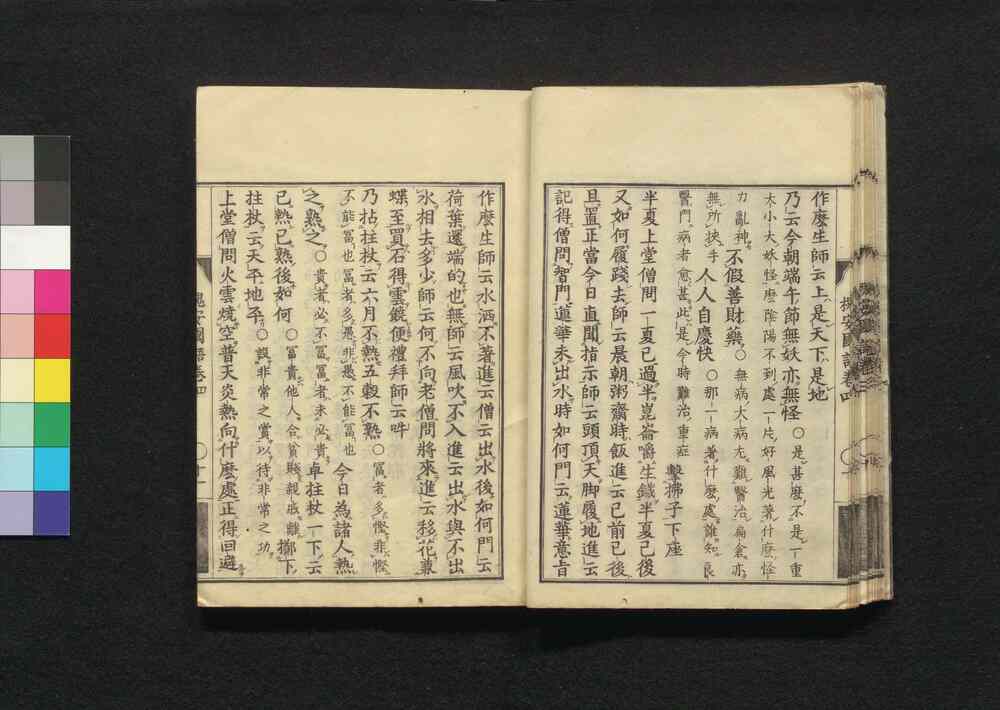 作麼生師云上是天下是地
乃云今朝端午節無妖亦無怪○是甚麼不是一重
大小大妖怪麼陰陽不到處一片好風光著什麼怪
力亂神不假善財藥○無病大病尤難醫治扁倉亦
無所挾手人人自慶快○那一病著什麼處誰知良
醫門病者愈甚此是今時難治重症擊拂子下座
半夏上堂僧問一夏已過半崑崙嚼生鐵半夏已後
又如何履踐去師云晨朝粥齋時飯進云已前已後
且置正當今日直聞指示師云頭頂天脚履地進云
記得僧問智門蓮華未出水時如何門云蓮華意旨
作麼生師云水洒不著進云僧云出水後如何門云
荷葉還端的也無師云風吹不入進云出水與不出
水相去多少師云何不向老僧問將來進云移花兼
蝶至買石得雲饒便禮拜師云吽
乃拈拄杖云六月不熱五穀不熟○富者多慳非慳
不能富也富者多愚非愚不能富也今日為諸人熱
之熟之○貴者必不富富者未必貴卓拄杖一下云
已熱已熟後如何○富貴他人合貧賤親戚離擲下
拄杖云天平地平○設非常之賞以待非常之功
上堂僧問火雲燒空普天炎熱向什麼處正得回避
槐安國語卷四